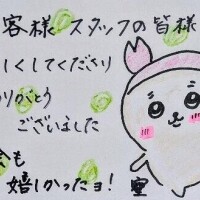 客様 スタッフの皆様
しくしてくださり
りがとう
ございました
も
嬉しかったョ!